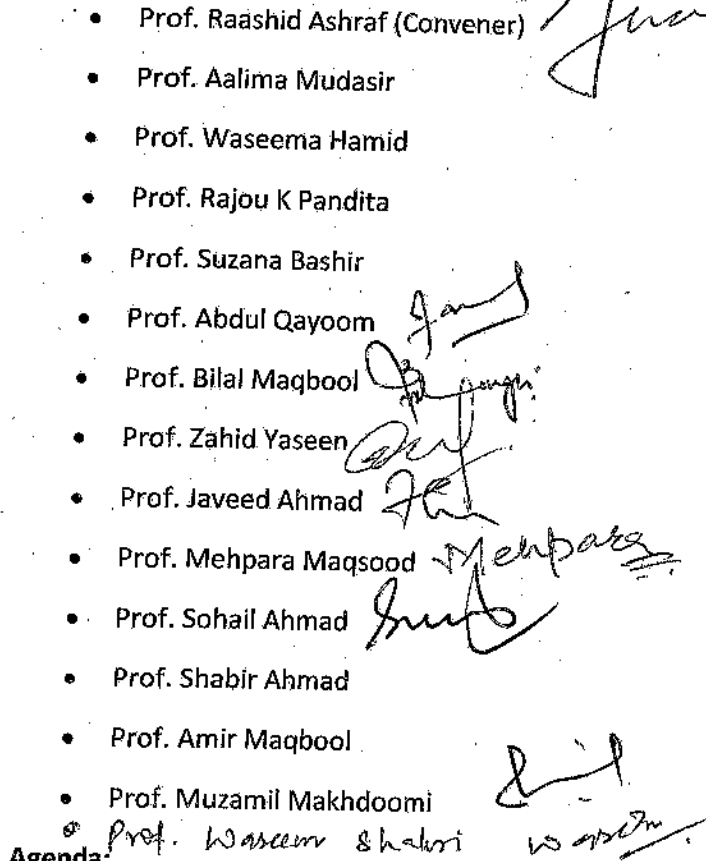 • Prof. Raashid Ashraf (Convener)
• Prof. Aalima Mudasir
• Prof. Waseema Hamid
• Prof. Rajou K Pandita
• Prof. Suzana Bashir
• Prof. Abdul Qayoom
• Prof. Bilal Maqbool
• Prof. Zahid Yaseen
• Prof. Javeed Ahmad
• Prof. Mehpara Maqsood Mehpara
• Prof. Sohail Ahmad
• Prof. Shabir Ahmad
• Prof. Amir Maqbool
• Prof. Muzamil Makhdoomi
• Prof. Waseem
Agenda: